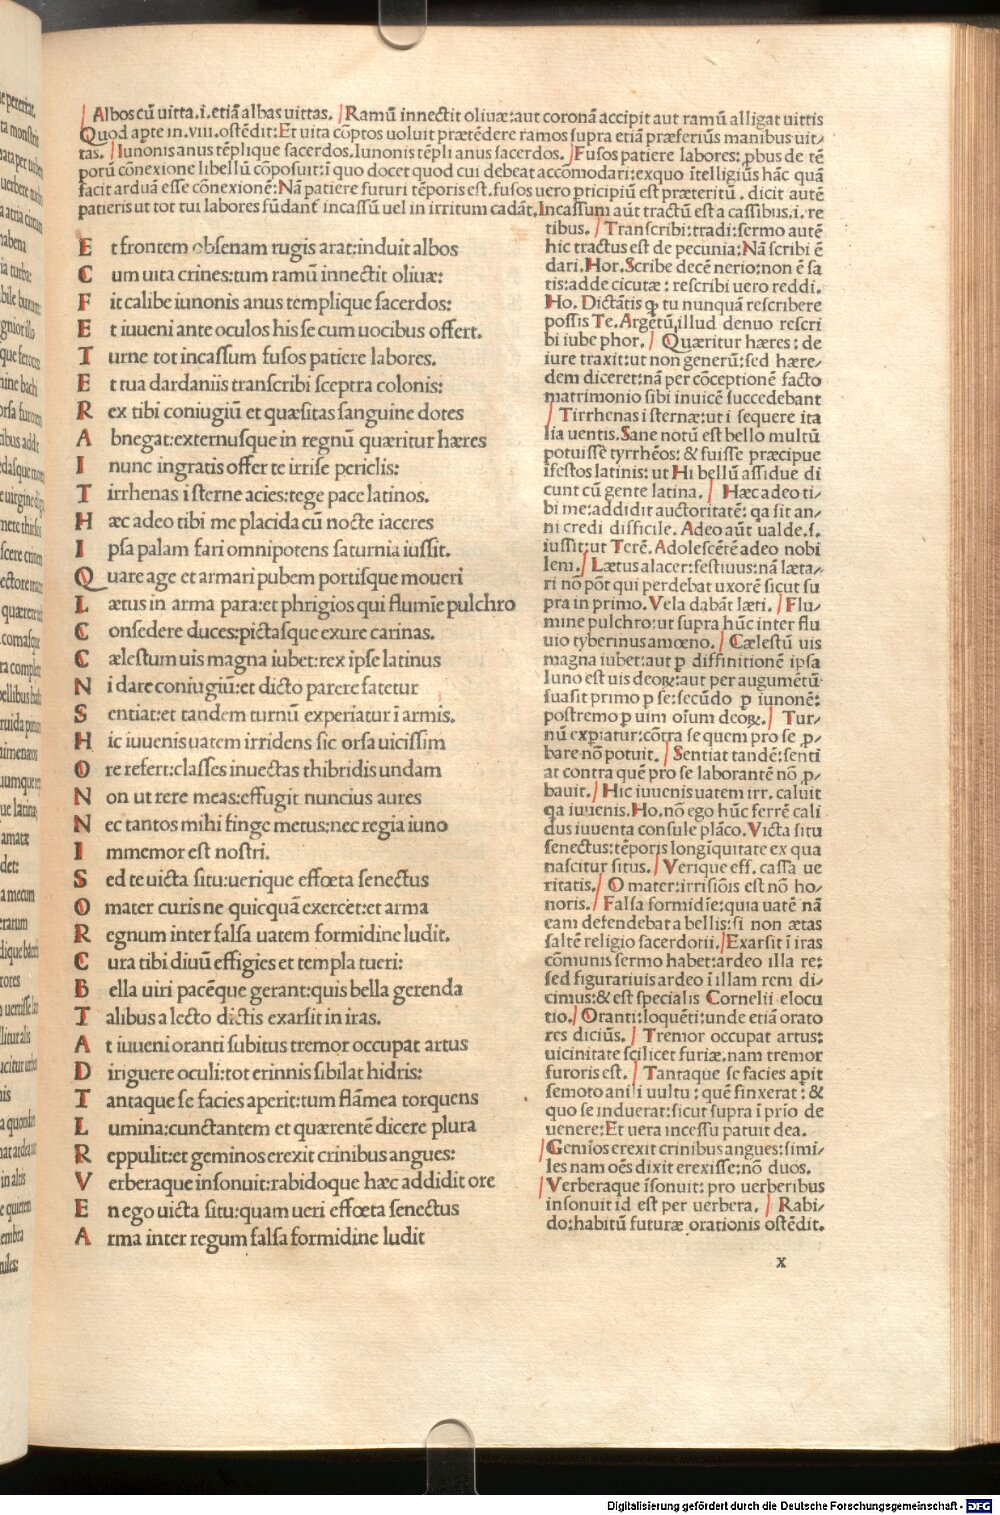 Albos cū uitta.i.etiā albas uittas. Ramū innectit oliuæ:aut coronā accipit aut ramū alligat uittis
Quod apte in.viii.ostēdit:Et uita cōptos uoluit prætēdere ramos supra etiā præferiūs manibus uit-
tas. Iunonis anus tēplique sacerdos.Iunonis tēpli anus sacerdos. Fusos patiere labores: ꝓbus de tē
porū cōnexione libellū cōposuit:ī quo docet quod cui debeat accōmodari:exquo ītelligiūs hāc quā
facit arduā esse cōnexionē:Nā patiere futuri tēporis est.fusos uero ꝑticipiū est præteritū. dicit autē
patieris ut tot tui labores fūdant̄ incassū uel in irritum cadāt.Incassum aūt tractū est a cassibus.i.re
E t frontem obsenam rugis arat:induit albos
C um uita crines:tum ramū innectit oliuæ:
F it calibe iunonis anus templique sacerdos:
E t iuueni ante oculos his se cum uocibus offert.
T urne tot incassum fusos patiere labores.
E t tua dardaniis transcribi sceptra colonis:
R ex tibi coniugiū et quæsitas sanguine dotes
A bnegat:externusque in regnū quæritur hæres
I nunc ingratis offer te irrise periclis:
T irrhenas i sterne acies:tege pace latinos.
H æc adeo tibi me placida cū nocte iaceres
I psa palam fari omnipotens saturnia iussit.
Q uare age et armari pubem portisque moueri
L ætus in arma para:et phrigios qui flumīe pulchro
C onsedere duces:pictasque exure carinas.
C ælestum uis magna iubet:rex ipse latinus
N i dare coniugiū:et dicto parere fatetur
S entiat:et tandem turnū experiatur ī armis.
H ic iuuenis uatem irridens sic orsa uicissim
O re refert:classes inuectas thibridis undam
N on ut rere meas:effugit nuncius aures
N ec tantos mihi finge metus:nec regia iuno
I mmemor est nostri.
S ed te uicta situ:uerique effœta senectus
O mater curis ne quicquā exercet:et arma
R egnum inter falsa uatem formidine ludit.
C ura tibi diuū effigies et templa tueri:
B ella uiri pacēque gerant:quis bella gerenda
T alibus alecto dictis exarsit in iras.
A t iuueni oranti subitus tremor occupat artus
D iriguere oculi:tot erinnis sibilat hidris:
T antaque se facies aperit:tum flāmea torquens
L umina:cunctantem et quærentē dicere plura
R eppulit:et geminos erexit crinibus angues:
V erberaque insonuit:rabidoque hæc addidit ore
E n ego uicta situ:quam ueri effœta senectus
A rma inter regum falsa formidine ludit
tibus. Transcribi:tradi:sermo autē
hic tractus est de pecunia:Nā scribi ē
dari.Hor.Scribe decē nerio:non ē sa
tis:adde cicutæ: rescribi uero reddi.
Ho. Dictātis ꝙ tu nunquā rescribere
possis Te.Argētū,illud denuo rescri
bi iube phor. Quæritur hæres: de
iure traxit:ut non generū:sed hære-
dem diceret:nā per cōceptionē facto
matrimonio sibi inuicē succedebant
Tirrhenas i sternæ:ut i sequere ita
lia uentis.Sane notū est bello multū
potuisse tyrrhēos: & fuisse præcipue
īfestos latinis: ut Hi bellū assidue di
cunt cū gente latina. Hæc adeo ti-
bi me:addidit auctoritatē: qa sit an-
ni credi difficile. Adeo aūt ualde.s.
iussit:ut Terē. Adolescētē adeo nobi
lem. Lætus alacer:festiuus:nā læta-
ri nō pōt qui perdebat uxorē sicut su
pra in primo. Vela dabāt læti. Flu-
mine pulchro:ut supra hūc inter flu
uio tyberinus amœno. Cælestū uis
magna iubet:aut ꝑ diffinitionē ipsa
Iuno est uis deoꝝ:aut per augumētū
suasit primo ꝑ se:secūdo ꝑ iunonē:
postremo ꝑ uim oīum deoꝝ. Tur-
nū exꝑiatur:cōtra se quem pro se ꝓ-
bare nō potuit. Sentiat tandē:senti
at contra quē pro se laborantē nō ꝓ-
bauit. Hic iuuenis uatem irr. caluit
qa iuuenis.Ho.nō ego hūc ferrē cali
dus iuuenta consule plāco.Victa situ
senectus:tēporis longīquitate ex qua
nascitur situs. Verique eff. cassa ue
ritatis. O mater:irrisiōis est nō ho-
noris. Falsa formidīe:quia uatē nā
eam defendebat a bellis:si non ætas
saltē religio sacerdotii. Exarsit ī iras
cōmunis sermo habet:ardeo illa re:
sed figuratiuis ardeo ī illam rem di-
cimus:& est specialis Cornelii elocu
tio. Oranti:loquēti:unde etiā orato
res diciūs. Tremor occupat artus:
uicinitate scilicet furiæ,nam tremor
furoris est. Tantaque se facies aꝑit
semoto anili uultu: quē finxerat: &
quo se induerat:sicut supra ī prīo de
uenere:Et uera incessu patuit dea.
Gemīos erexit crinibus angues:simi-
les nam oēs dixit erexisse:nō duos.
Verberaque īsonuit: pro uerberibus
insonuit id est per uerbera. Rabi-
do:habitū futuræ orationis ostēdit.
x
Digitalisierung gefördert durch die Deutsche Forschungsgemeinschaft - DFG